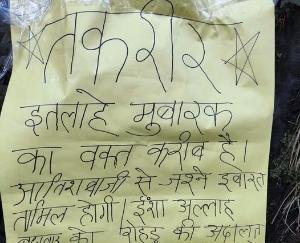 तकरीर
इत्लाहे मुबारक
का वक्त करीब है।
आतिशबाजी से जश्ने इबारत
तामिल होगी। ईंशा अल्लाह
को बीहड़ की अदालत